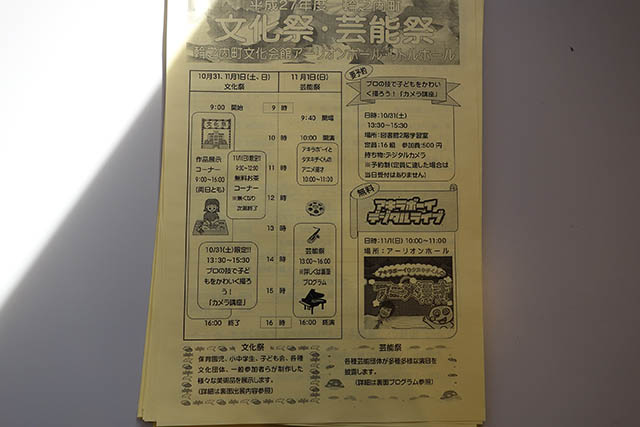 平成27年度 輪之内町
文化祭・芸能祭
輪之内町文化会館アーリオンホール・リトルホール
10月31、11月1日(土、日)
文化祭
11月1日(日)
芸能祭
9:00 開始
9 時
9:40 開場
10 時
10:00 開演
作品展示
コーナー
9:00~16:00
(両日とも)
11/1(日)限定!!
9:30~12:00
無料お茶
コーナー
※無くなり
次第終了
アキラボーイと
タヌキチくんの
アニメ漫才
10:00~11:00
11 時
12 時
13 時
10/31(土)限定!!
13:30~15:30
プロの技で子ど
もをかわいく撮ろ
う!
「カメラ講座」
芸能祭
13:00~16:00
※詳しくは裏面
プログラム
14 時
15 時
16:00 終了
16 時
16:00 終演
要予約
プロの技で子どもをかわい
く撮ろう!「カメラ講座」
日時:10/31(土)
13:30~15:30
場所:図書館2階学習室
定員:16組 参加費:500円
持ち物:デジタルカメラ
※予約制(定員に達した場合は
当日受付はありません)
無料
アキラボーイ
デジタルライブ
日時:11/1(日) 10:00~11:00
場所:アーリオンホール
アニメ漫才
文化祭
保育園児、小中学生、子ども会、各種
文化団体、一般参加者らが制作した
様々な美術品を展示します。
(詳細は裏面出展内容参照)
芸能祭
各種芸能団体が多種多様な演目を
披露します。
(詳細は裏面プログラム参照)